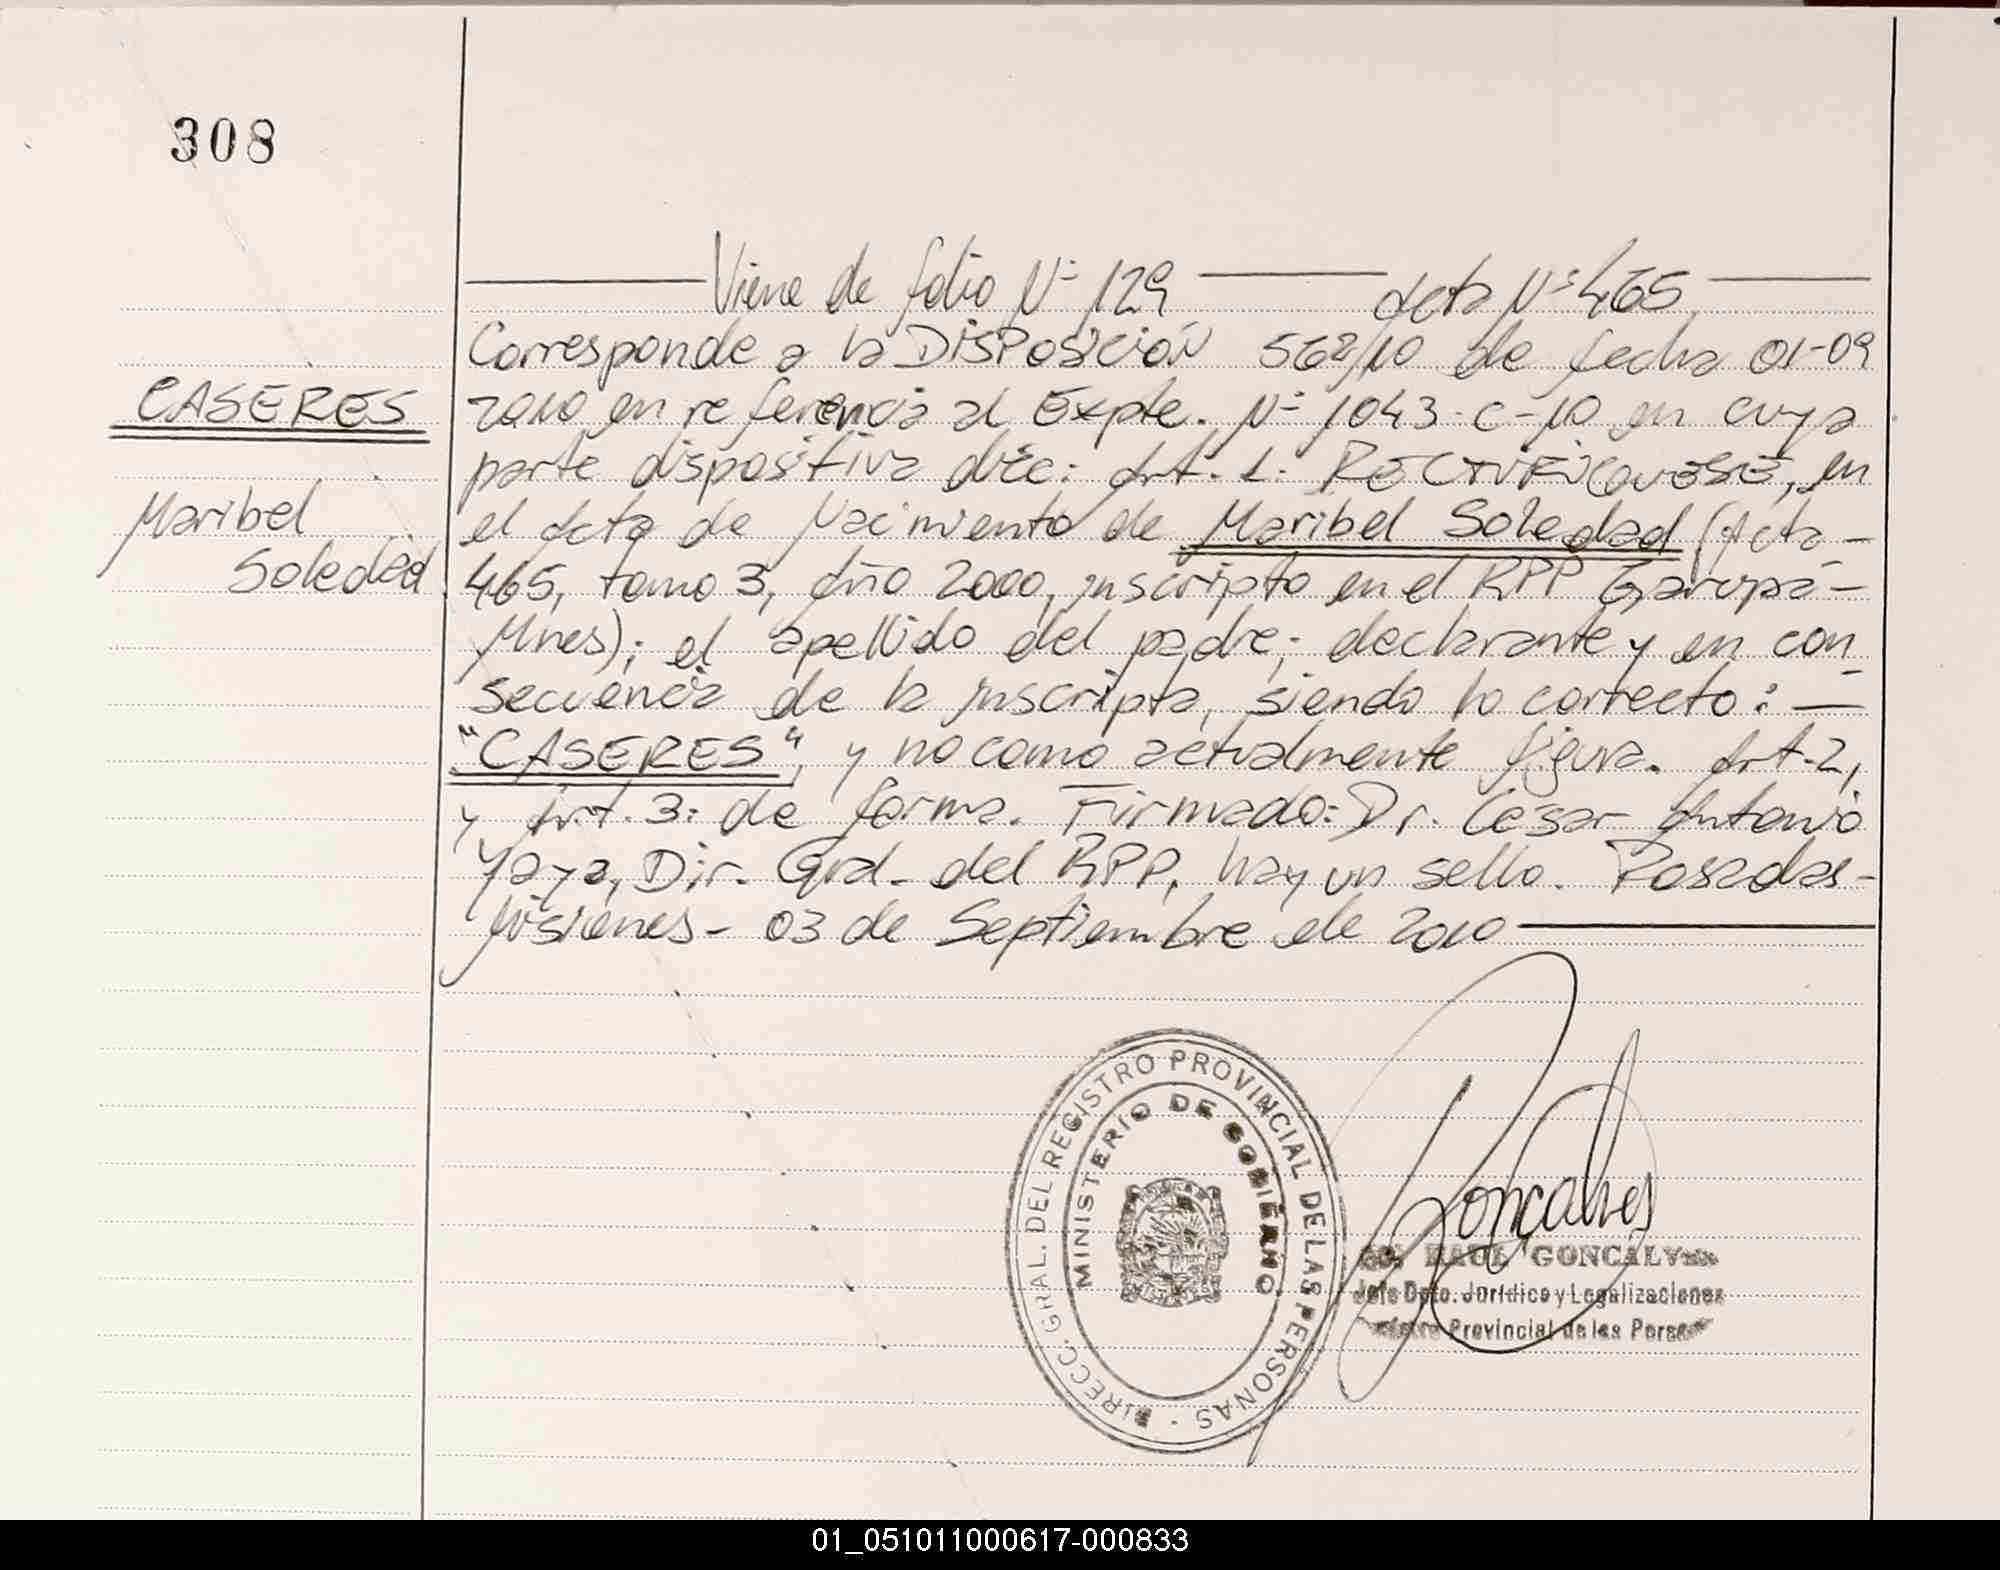 308
Viene de folio Nº 129 Acta Nº 465
Corresponde a la DISPOSICIÓN 562/10 de fecha 01-09
2010 en referencia al Expte. Nº 1043-C-10 en cuya
parte dispositiva dice: Art. 1: RECTIFIQUESE, en
el Acta de Nacimiento de Maribel Soledad (Acta-
465, tomo 3, Año 2000, inscripto en el RPP Garupa-
Mnes); el apellido del padre; declarante y en con
secuencia de la inscripta, siendo lo correcto: —
"CASERES", y no como actualmente figura. Art. 2,
y Art. 3: de forma. Firmado: Dr. César Antonio
Yaya, Dir. Gral. del RPP, hay un sello. Posadas-
Misiones- 03 de Septiembre de 2010
CASERES
Maribel
Soledad
DIRECC. GRAL. DEL REGISTRO PROVINCIAL DE LAS PERSONAS -
MINISTERIO DE GOBIERNO
Goncalves
RAUL GONCALVES
Jefe Dpto. Jurídico y Legalizaciones
Provincial de las Personas
01_051011000617-000833